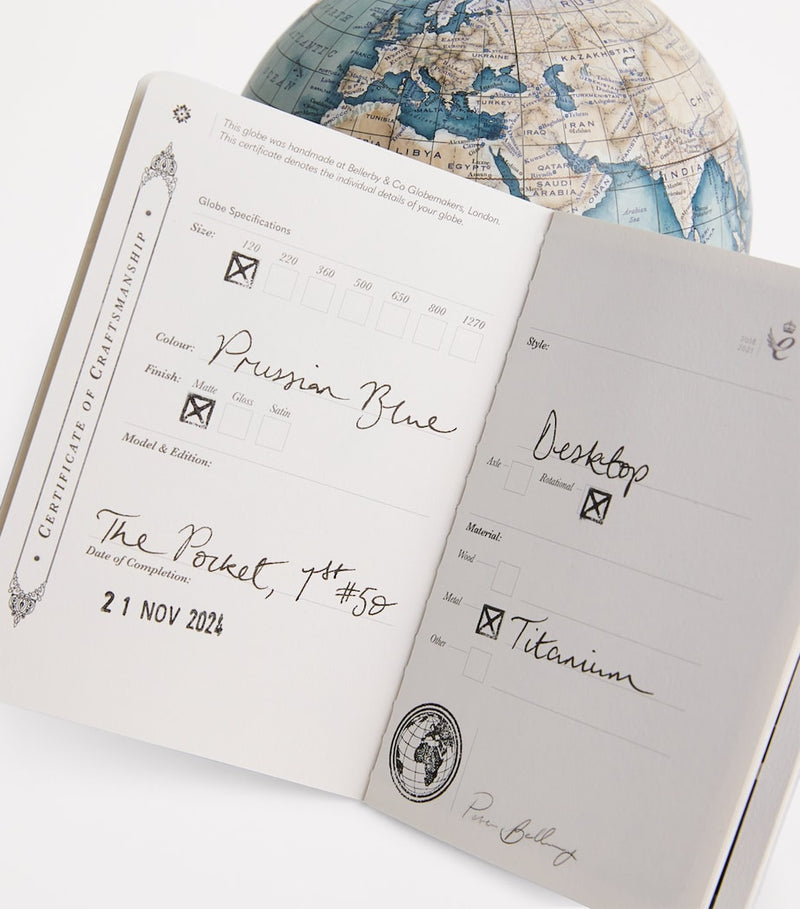 ATLANTIC
OCEAN
FRANCE
UKRAINE
KAZAKHSTAN
TURKEY
TUNISIA
LIBYA
EGYPT
IRAQ
IRAN
Kuwait
QATAR
SAUDI
ARABIA
OMAN
Arabian
Sea
INDIA
CHINA
This globe was handmade at Bellerby & Co Globemakers, London.
This certificate denotes the individual details of your globe.
• CERTIFICATE OF CRAFTSMANSHIP •
Globe Specifications
Size:
120 220 360 500 650 800 1270
Colour: Prussian Blue
Finish: Matte Gloss Satin
Model & Edition:
The Pocket, 1st #50
Date of Completion:
21 NOV 2024
Style:
Desktop
Axle Rotational
Material:
Wood
Metal Titanium
Other